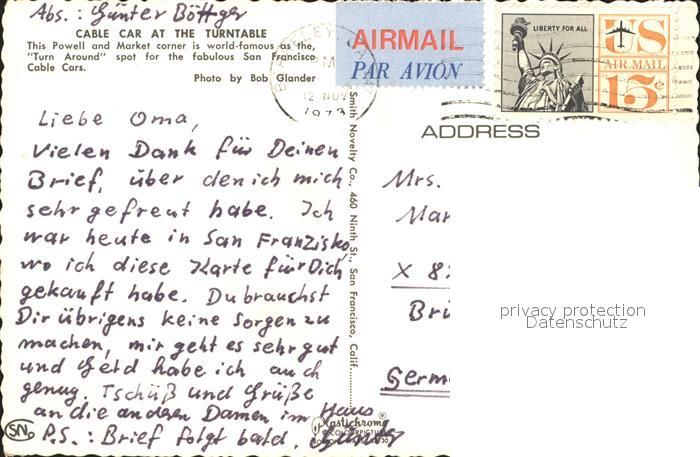 Abs.: Günter Böttger
CABLE CAR AT THE TURNTABLE
This Powell and Market corner is world-famous as the,
"Turn Around" spot for the fabulous San Francisco
Cable Cars.
Photo by Bob Glander
Liebe Oma,
vielen Dank für Deinen
Brief, über den ich mich
sehr gefreut habe. Ich
war heute in San Franzisko,
wo ich diese Karte für Dich
gekauft habe. Du brauchst
Dir übrigens keine Sorgen zu
machen, mir geht es sehr gut
und Geld habe ich auch
genug. Tschüß und Grüße
an die anderen Damen im Haus
P.S.: Brief folgt bald. Günter
SN
Smith Novelty Co., 460 Ninth St., San Francisco, Calif.
Plastichrome®
AIRMAIL
PAR AVION
12 NOV
1973
LIBERTY FOR ALL
US
AIR MAIL
15¢
ADDRESS
Mrs.
Mar
X 8
Brü
Germ
privacy protection
Datenschutz